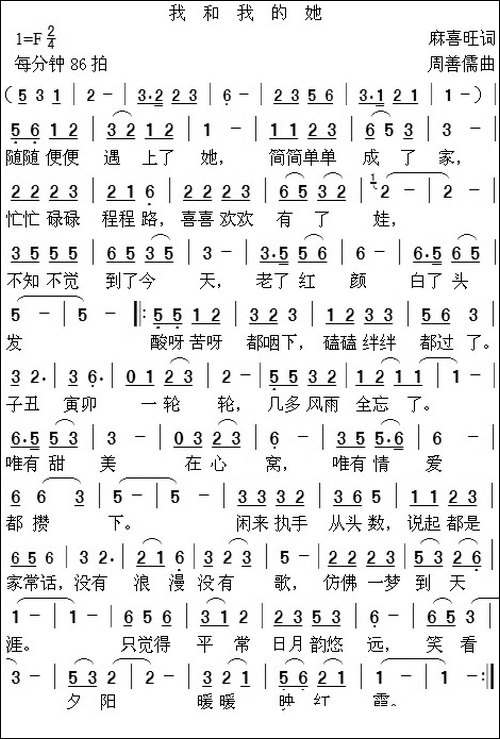 我和我的她
1=F 2/4 麻喜旺词
每分钟 86 拍 周善儒曲
( 5 3 1 | 2 - | 3·2 2 3 | 6 - | 2 3 5 6 | 3·1 2 1 | 1 - ) |
5 6 1 2 | 3 2 1 2 | 1 - | 5 5 3 2 | 6 5 3 | 3 - |
随随 便便 遇 上了 她， 简简单单 成 了 家，
2 2 2 3 | 2 1 6 | 2 2 2 3 | 6 5 3 2 | 2 - | 2 - |
忙忙 碌碌 程程 路， 喜喜 欢欢 有 了 娃，
3 5 5 5 | 6 5 3 5 | 3 - | 3·5 5 6 | 6 - | 6·5 6 5 |
不知 不觉 到了今 天， 老了 红 颜 白了 头
5 - | 5 - ‖: 5 5 1 2 | 3 3 2 | 3 3 1 2 | 5 6 3 |
发 酸呀 苦呀 都咽下， 磕磕 绊绊 都过 了。
3 2· | 3 6· | 0 1 2 3 | 2 - | 5 5 3 2 | 1 2 1 1 | 1 - |
子丑 寅卯 一 轮 轮， 几多 风雨 全忘 了。
6·5 5 3 | 3 - | 0 3 2 3 | 6 - | 3 5 5·6 | 6 - |
唯有 甜 美 在 心 窝， 唯有 情 爱
6 6 3 | 5 - | 5 - | 3 3 3 3 | 6 5 5 | 1 1 2 3 |
都 攒 下。 闲来 执手 从头 数， 说起 都是
6 5 6 | 3 2· | 2 1 6 | 3 2 3 | 2 - | 2 2 2 2 | 5 3 2 6 |
家常话，没有 浪 漫 没有 歌， 仿佛 一梦 到 天
1 - | 1 - | 6 5 6 | 3 2 1 | 2 2 5 3 | 6 - | 6 5 3 |
涯。 只觉得 平 常 日月 韵悠 远， 笑 看
3 - | 5 3 2 | 2 - | 3 2 3 | 5 6 1 1 | 1 - | 1 - :‖
夕 阳 暖 暖 映 红 霞。